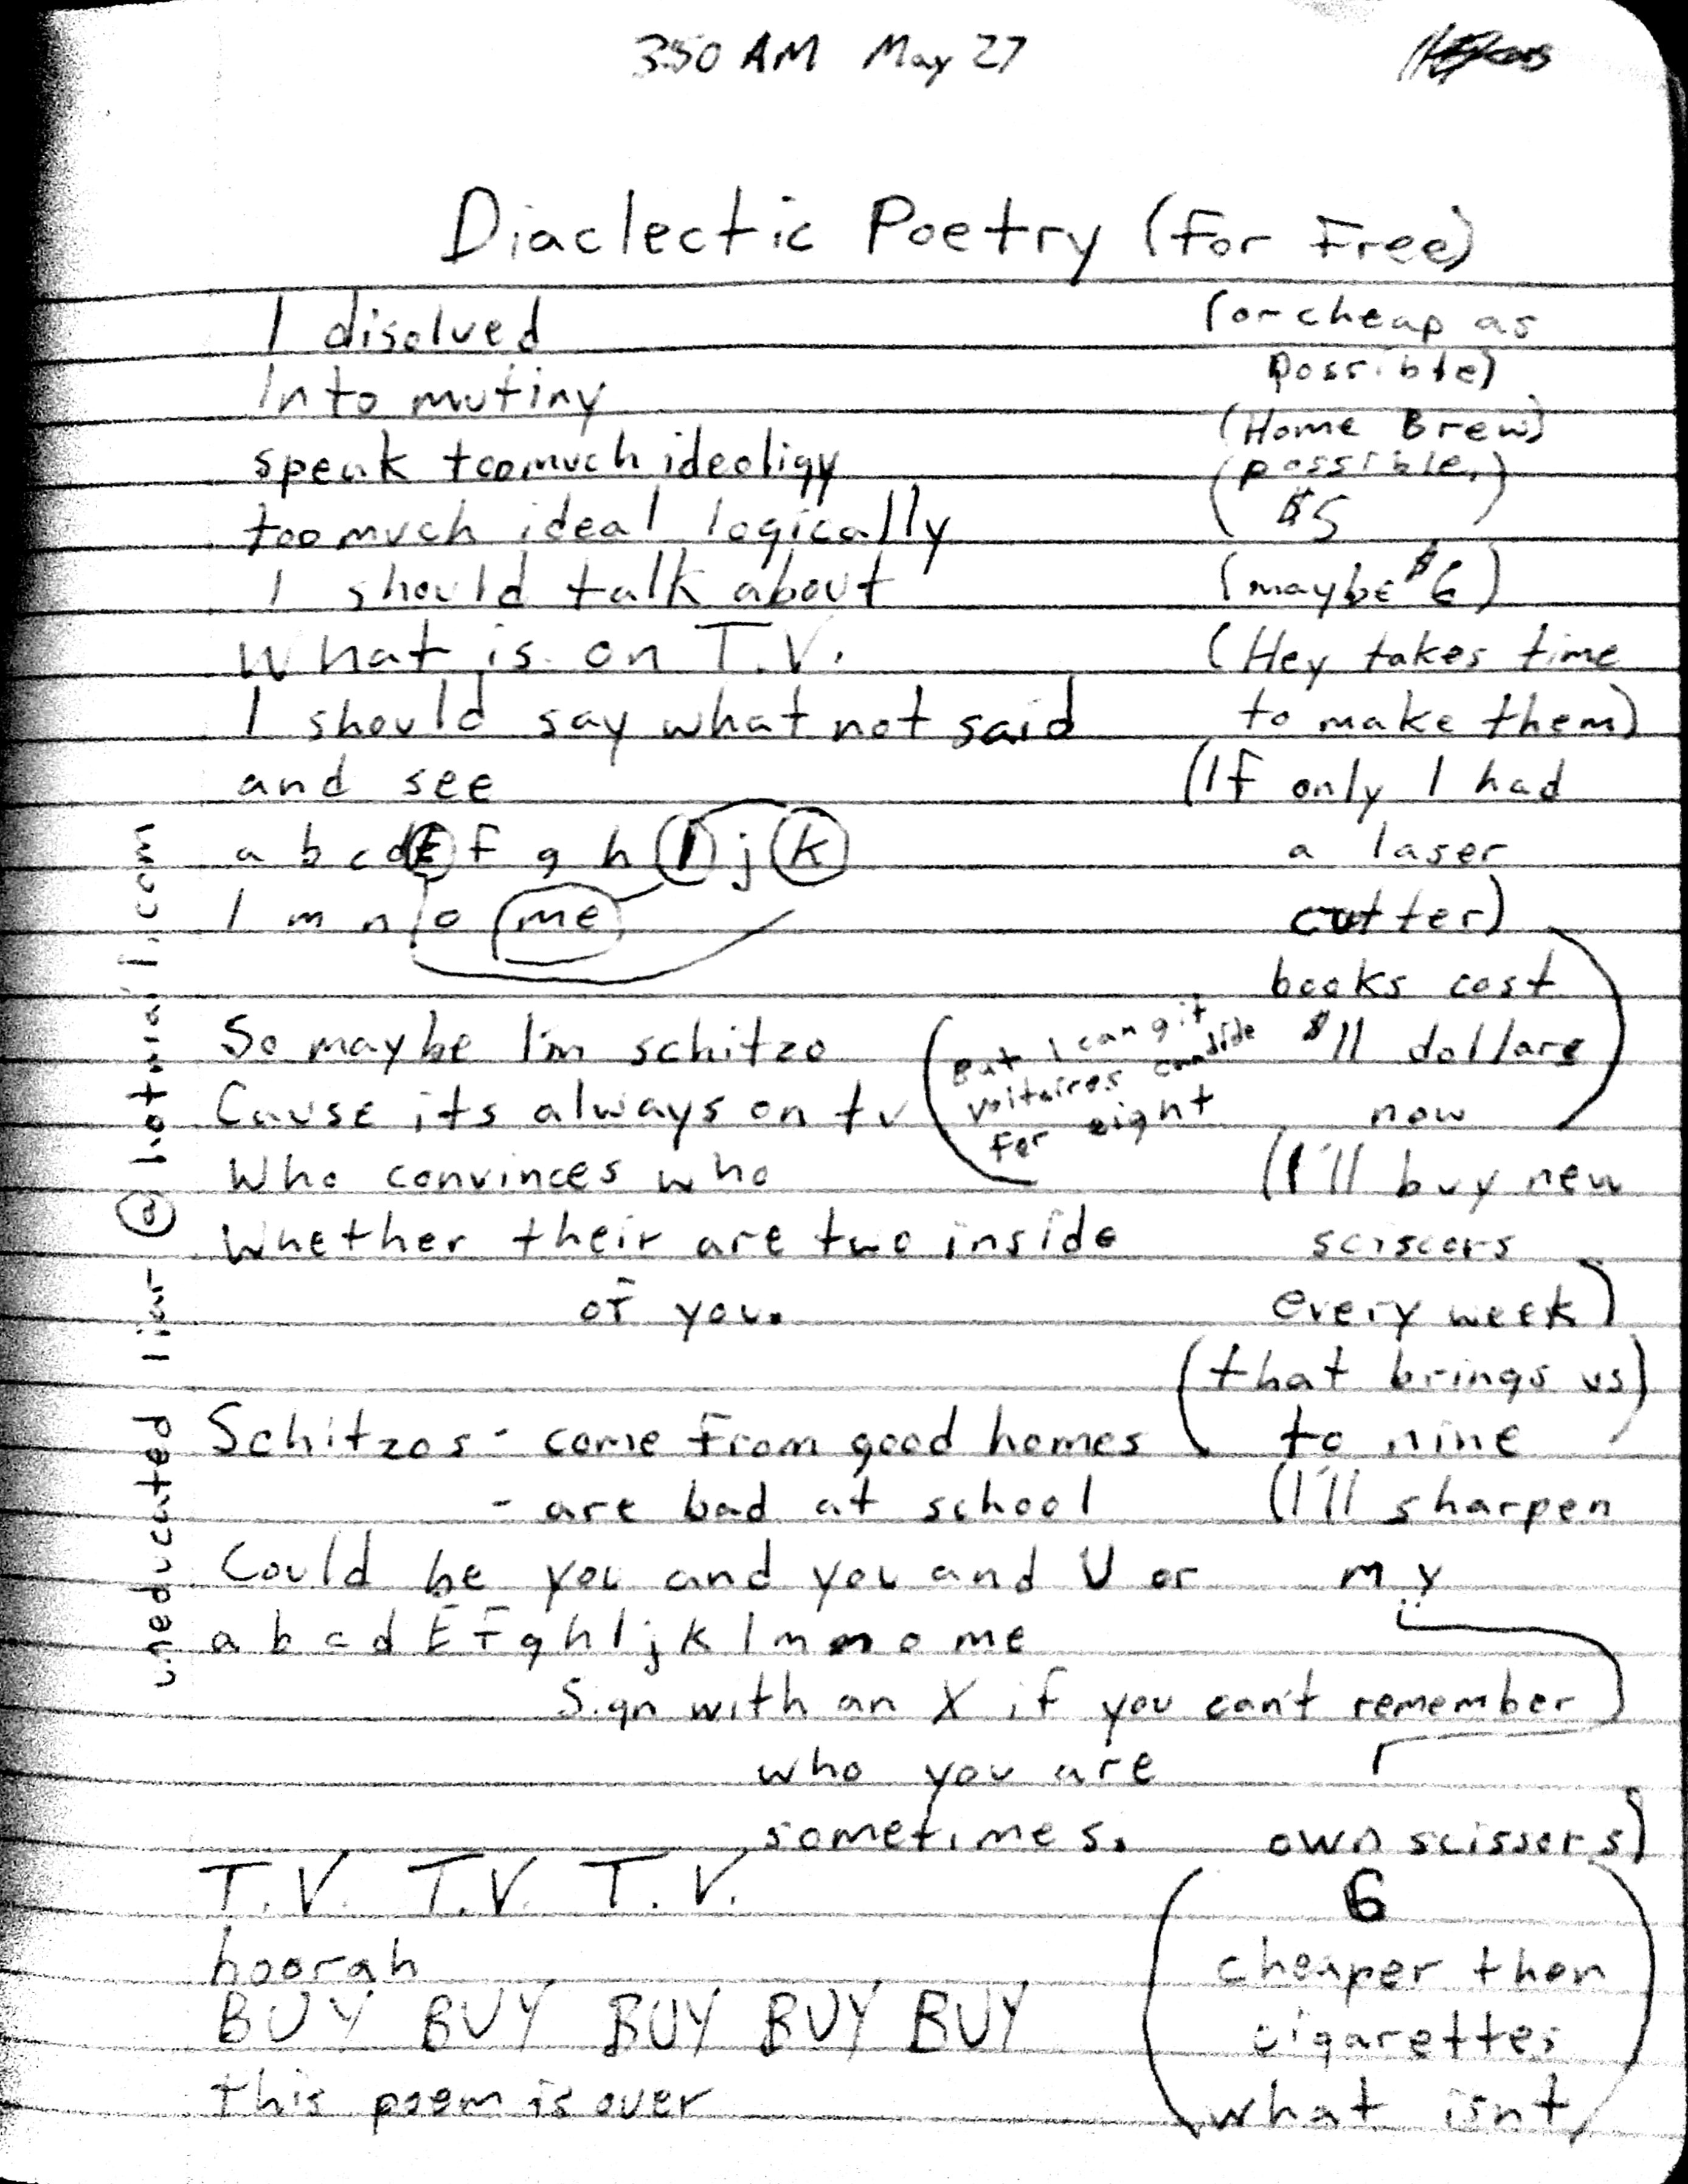 3:50 AM May 27
Diaclectic Poetry (For Free)
I disolved
Into mutiny
speak toomuch ideoligy
too much ideal logically
I should talk about
What is on T.V.
I should say what not said
and see
a b c d E f g h I j k
l m n o me
So maybe I'm schitzo
Cause its always on tv
Who convinces who
Whether their are two inside
of you.
Schitzos - come from good homes
- are bad at school
Could be you and you and U or
a b c d E F g h I j k l m n o me
Sign with an X if you can't remember
who you are
sometimes.
T.V. T.V. T.V.
hoorah
BUY BUY BUY BUY BUY
this poem is over
(or cheap as
possible)
(Home Brew)
(possible,)
$5
(maybe $6)
(Hey takes time
to make them)
(If only I had
a laser
cutter)
books cost
$11 dollars
now)
(but I can git
voltaires candide
for eight
(I'll buy new
sciscors
every week)
(that brings us)
to nine
(I'll sharpen
my
own scissors)
(6
cheaper then
cigarettes
what isnt)
uneducated liar @ hotmail.com